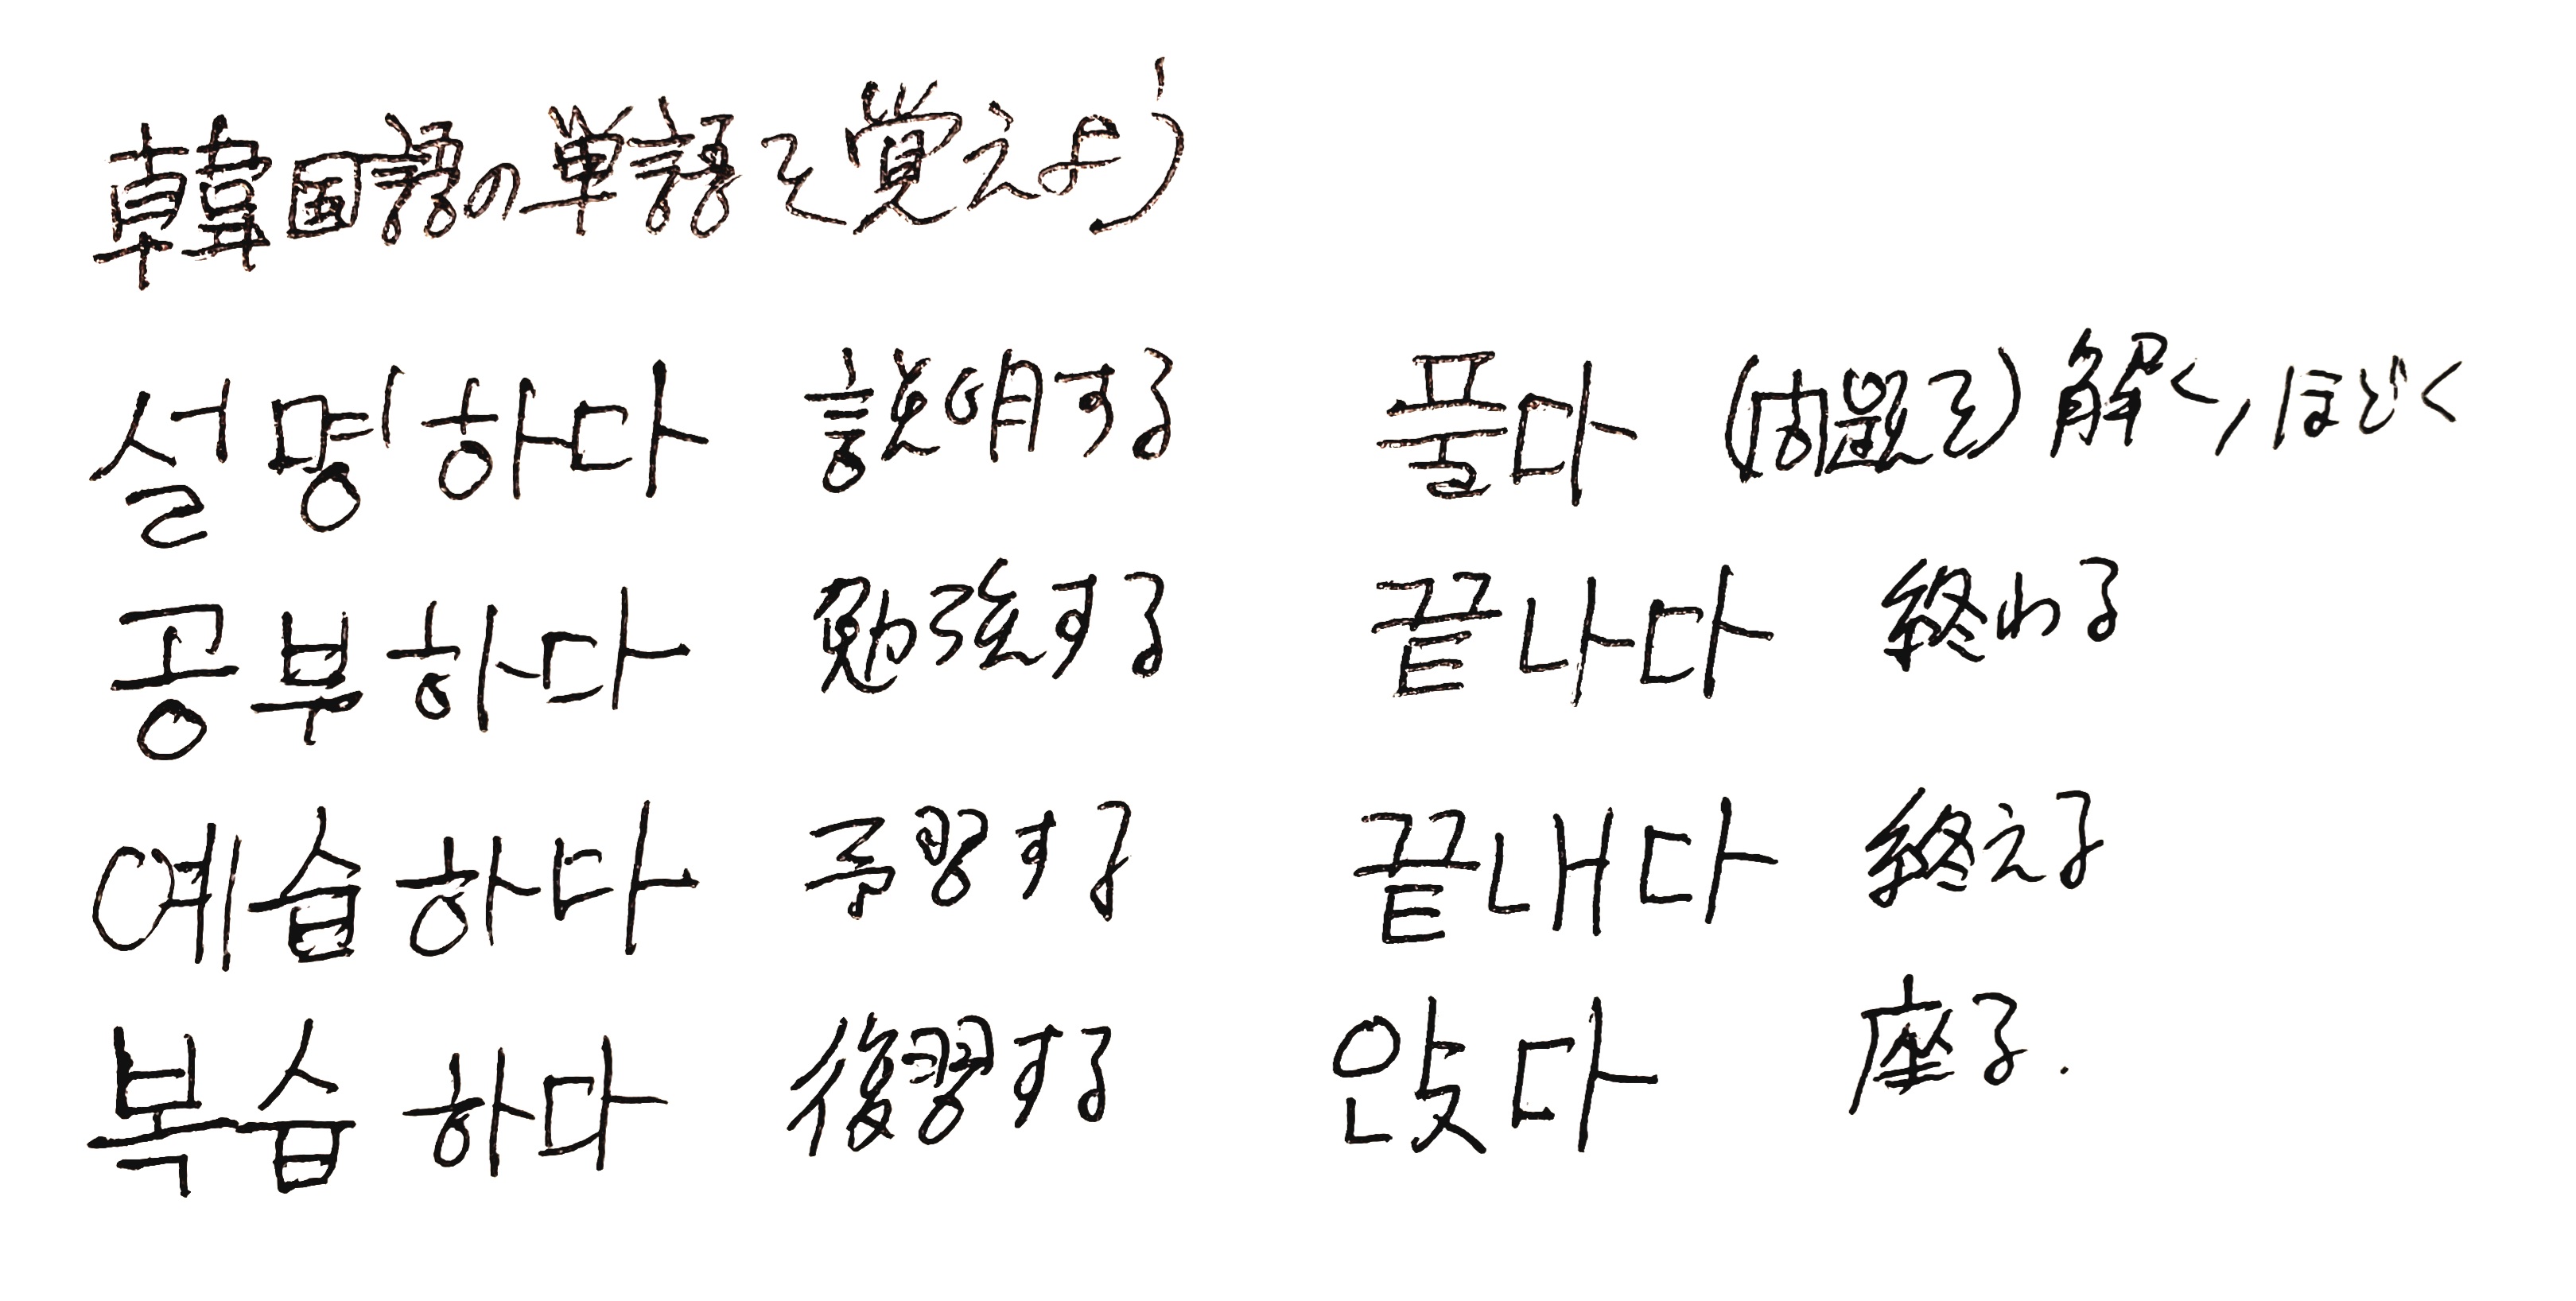 韓国語の単語を覚えよう
설명하다 説明する
공부하다 勉強する
예습하다 予習する
복습하다 復習する
풀다 (問題を)解く, ほどく
끝나다 終わる
끝내다 終える
앉다 座る.